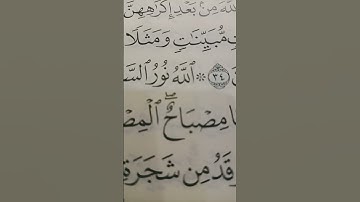 ٱللَّهَ مِنۢ بَعۡدِ إِكۡرَٰهِهِنَّ
مُّبَيِّنَٰتٖ وَمَثَلٗا
٣٤ ۞ ٱللَّهُ نُورُ ٱلسَّ
مِصۡبَاحٌۖ ٱلۡمِصۡ
قَدُ مِن شَجَرَةٖ